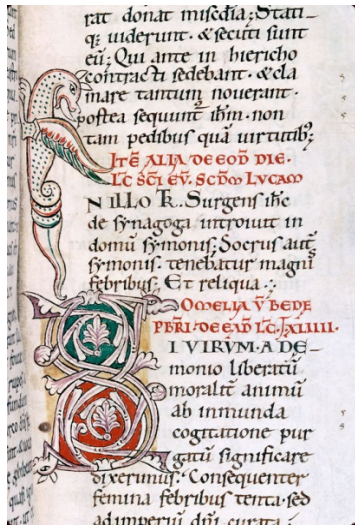 rat donat miſc̄dia; Stati-
q; uiderunt · & ſecuti ſunt
eū; Qui ante in hiericho
contracti ſedebant · & cla
mare tantum nouerant ·
poſtea ſequunt ihm · non
tam pedibus quā uirtutib;
ITĒ ALIA DE EOD DIE ·
LC SCI EV. SCDM LVCAM
N ILLO T̄R. Surgens ihc
de ſynagoga introiuit in
domū ſymonis; Socrus aut
ſymonis · tenebatur magnis
febribus; Et reliqua ·
OMELIA V̄ BEDE
PBRI · DE EAD LC · LXIIIII.
I VIRVM · A DE-
monio liberatū
moralit animū
ab inmunda
cogitatione pur
gatū ſignificare
dixerimus; Conſequenter
femina febribus tenta · ſed
ad imperiū dni curata ·